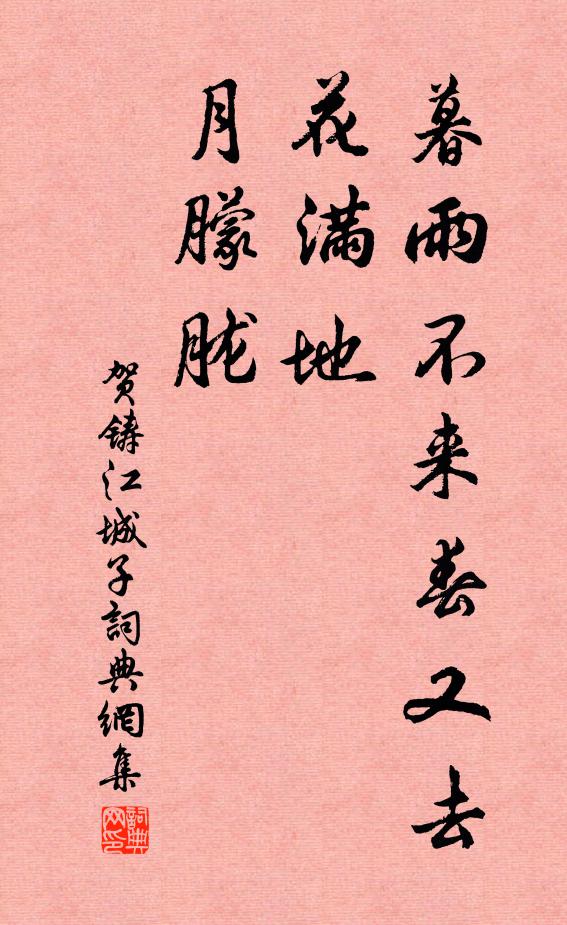 暮雨不来春又去
花满地
月朦胧
贺铸江城子詞典網集
詞典
网印